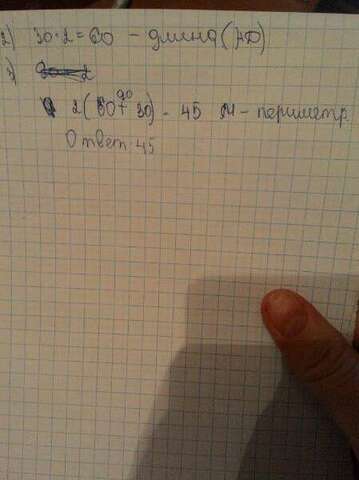 2) 30·2=60 - длина (АД)
3)
2(60+30) = 45 м - периметр
90
Ответ: 45